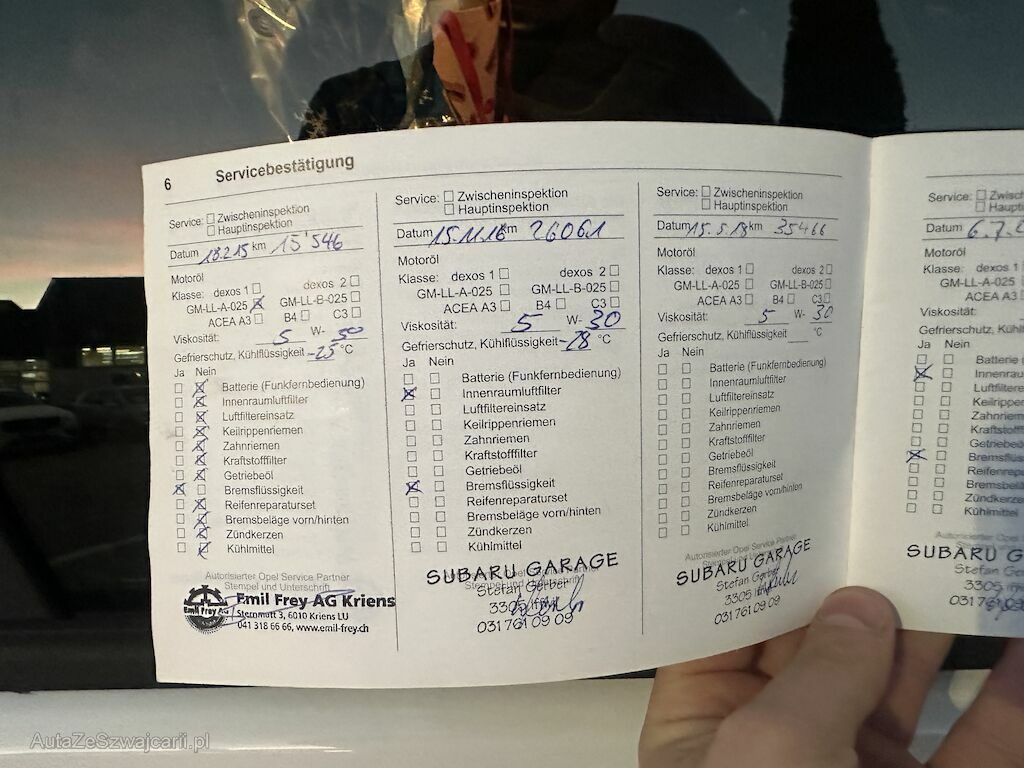 6 Servicebestätigung
Service: Zwischeninspektion
Hauptinspektion
Datum 18.2.15 km 15'546
Motoröl
Klasse: dexos 1 dexos 2
GM-LL-A-025 GM-LL-B-025
ACEA A3 B4 C3
Viskosität: 5 W- 30
Gefrierschutz, Kühlflüssigkeit -25 °C
Ja Nein
Batterie (Funkfernbedienung)
Innenraumluftfilter
Luftfiltereinsatz
Keilrippenriemen
Zahnriemen
Kraftstofffilter
Getriebeöl
Bremsflüssigkeit
Reifenreparaturset
Bremsbeläge vorn/hinten
Zündkerzen
Kühlmittel
Autorisierter Opel Service Partner
Stempel und Unterschrift
Emil Frey AG
Emil Frey AG Kriens
Sternmatt 3, 6010 Kriens LU
041 318 66 66, www.emil-frey.ch
Service: Zwischeninspektion
Hauptinspektion
Datum 15.11.16 km 26061
Motoröl
Klasse: dexos 1 dexos 2
GM-LL-A-025 GM-LL-B-025
ACEA A3 B4 C3
Viskosität: 5 W- 30
Gefrierschutz, Kühlflüssigkeit -28 °C
Ja Nein
Batterie (Funkfernbedienung)
Innenraumluftfilter
Luftfiltereinsatz
Keilrippenriemen
Zahnriemen
Kraftstofffilter
Getriebeöl
Bremsflüssigkeit
Reifenreparaturset
Bremsbeläge vorn/hinten
Zündkerzen
Kühlmittel
SUBARU GARAGE
Stempel und
Stefan
3305
031 761 09 09
Service: Zwischeninspektion
Hauptinspektion
Datum 15.5.18 km 35466
Motoröl
Klasse: dexos 1 dexos 2
GM-LL-A-025 GM-LL-B-025
ACEA A3 B4 C3
Viskosität: 5 W- 30
Gefrierschutz, Kühlflüssigkeit °C
Ja Nein
Batterie (Funkfernbedienung)
Innenraumluftfilter
Luftfiltereinsatz
Keilrippenriemen
Zahnriemen
Kraftstofffilter
Getriebeöl
Bremsflüssigkeit
Reifenreparaturset
Bremsbeläge vorn/hinten
Zündkerzen
Kühlmittel
Autorisierter Opel Service Partner
SUBARU GARAGE
Stefan
3305
031 761 09 09
Service: Zwisch
Haupti
Datum 6.7.
Motoröl
Klasse: dexos 1
GM-LL-A-025
ACEA A3
Viskosität:
Gefrierschutz, Kühlflüssi
Ja Nein
Batterie
Innenrau
Luftfiltere
Keilrippe
Zahnriem
Kraftstoff
Getriebeö
Bremsflüss
Reifenrepa
Bremsbelä
Zündkerze
Kühlmittel
Autorisierter Op
SUBARU G
Stefan G
3305
031 761
AutaZeSzwajcarii.pl